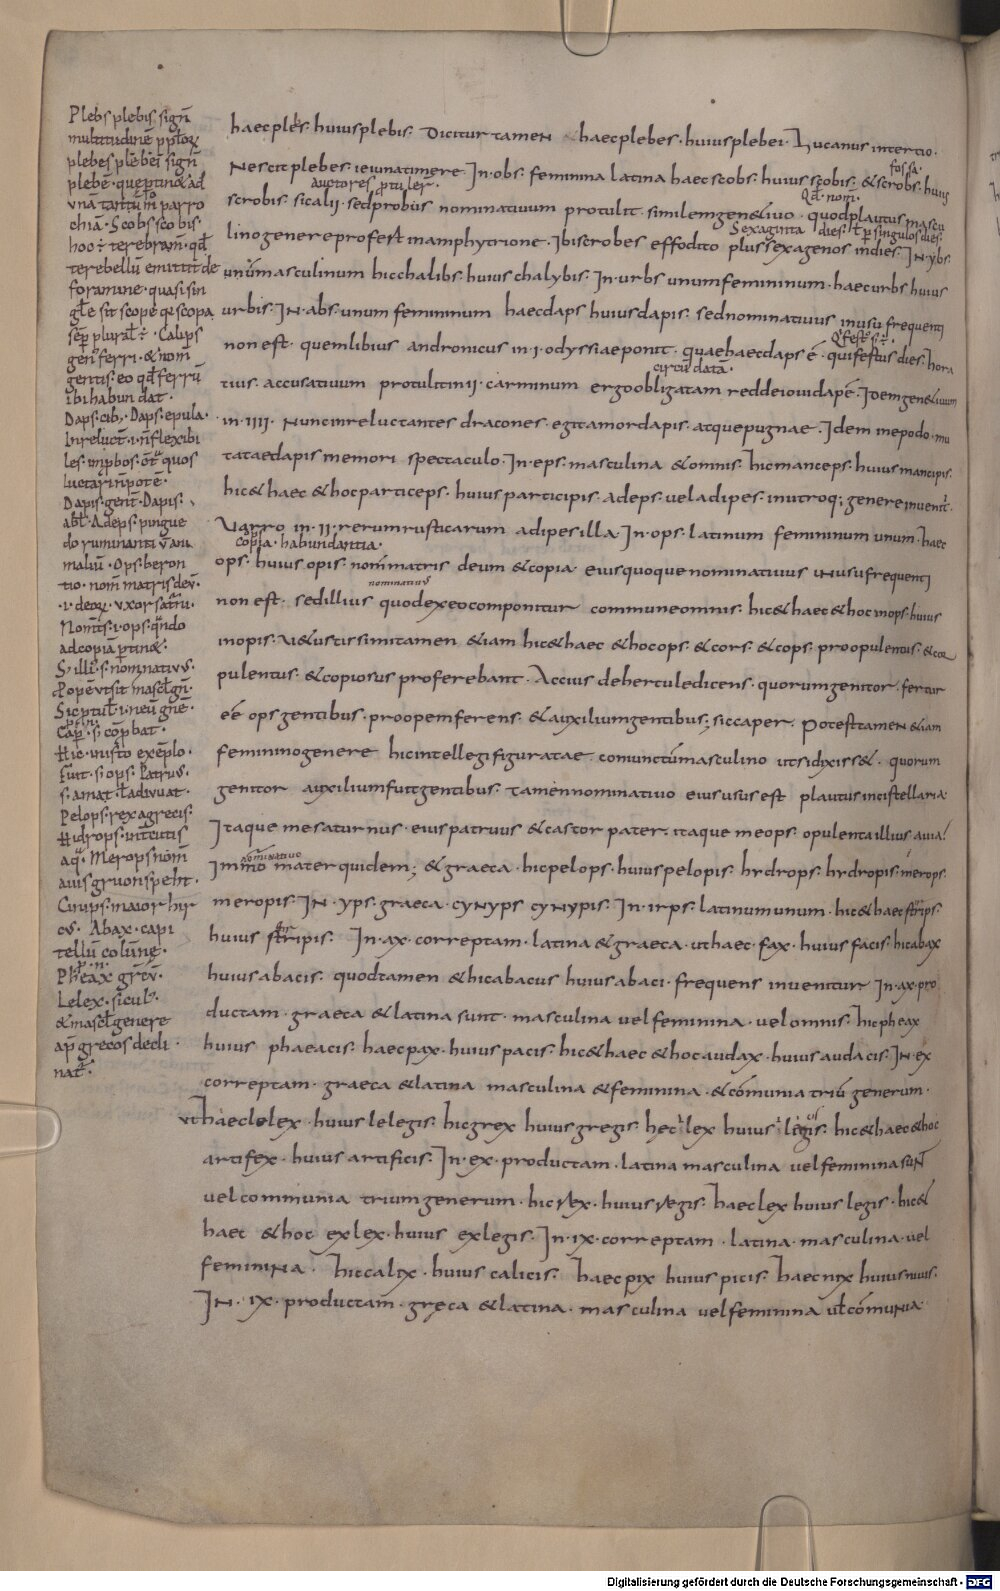 Plebs plebis. signł
multitudinē pp̄lor̄
plebes plēbei signł
plebē. que ptin& ad
unā tantū m̄ parro
chiā. Scobs scobis.
hoc ÷ terebram. qđ
terebellū emittit de
foramine. quasi sin
gl̄e sit scope q̄ scopa
sēp plural ÷. Calips
gen' ferri. & nom̄
gentis. eo qđ ferrū
ibi habundat.
Daps. cib'. Daps. epula.
Inreluct. i. n̄ flexibi
les. imp̄bos. om̄ quos
luctari n̄ pote.
Dapis. gent. Dapis.
abl. Adeps. pingue
do ruminantiū ani
maliū. Ops. beron
tio. nom̄ matris deū.
.i. deor̄. uxor saturni.
Nom̄s. i. ops. q̄ndo
ad copiā ptin&.
S; illi'. s. nominativus.
Popē ut sit mascł gn̄.
Sic ptul. i. neū gn̄e.
Cap. s. cōpbat.
Hic. iuxto exēplo.
Fuit. s. ops. Patruus.
s. amat. ł adiuuat.
Pelops. rex a grecis.
Hidrops. intercutis
aq. Merops nom̄
auis gruonspeht.
Cinips. maior hir
cus. Abax. capi
tellū colūnę.
Pheax grēu.
Lelex. sicul'.
& mascł genere
ap̄ grecos decli
nat.
haec plebs. huius plebis. Dicitur tamen & haec plebes. huius plebei. Lucanus in tertio.
Nescit plebes ieiuna timere. In. obs. feminina latina haec scobs. huius scobis. & scrobs. huius
fossa.
auctores ptuler. Qđ. nom̄.
scrobis. sic alii. sed probus nominativum protulit similem genetivo. quod plautus mascu
Sexaginta dies. ł p singulos dies.
lino genere profert in amphytrione. Ibi scrobes effodito plus sexagenos in dies. IN. ybs.
unum masculinum hic chalibs. huius chalybis. In. urbs unum femininum. haec urbs huius
urbis. IN. abs. unum femininum haec daps huius dapis. sed nominativus in usu frequenti
non est. quem libius andronicus in. i. odyssiae ponit. quae haec daps ē. qui festus dies. hora
circū datā.
tius. accusativum protulit in ii. carminum ergo obligatam redde iovi dapē. Idem genetivum
in. iiii. Nunc in reluctantes dracones. egit amor dapis. atque pugnae. Idem in epodo. mu
tatae dapis memori spectaculo. In. eps. masculina & omnis. hic manceps. huius mancipis.
hic & haec & hoc particeps. huius participis. adeps. vel adipes. in utroq; genere invenit.
Varro in. ii. rerum rusticarum adipes illa. In. ops. latinum femininum unum. haec
copia. habundantia.
ops. huius opis. nom̄ matris deum & copia. eius quoque nominativus in usu frequenti
nominativus
non est. sed illius quod ex eo componitur commune omnis. hic & haec & hoc inops. huius
inopis. Vetustissimi tamen etiam hic & haec & hoc ops. & cors. & cops. pro opulentus. & cor
pulentus. & copiosus proferebant. Accius de hercule dicens. quorum genitor. fertur
eē ops gentibus. pro opem ferens. & auxilium gentibus; sic caper. Potest tamen etiam
feminino genere hic intellegi figuratae coniunctū masculino ut si dixisset. quorum
genitor auxilium fuit gentibus. tamen nominativo eius usus est plautus in cistellaria.
Itaque me saturnus. eius patruus & castor pater. itaque me ops. opulenta illius avia!
nominativo
Immo mater quidem; & graeca. hic pelops. huius pelopis. hydrops. hydropis. merops.
meropis. IN. yps. graeca. cynyps cynypis. In. irps. latinum unum. hic & haec stirps.
huius stirpis. In. ax. correptam. latina & graeca. ut haec. fax. huius facis. hic abax
huius abacis. quod tamen & hic abacus huius abaci. frequens invenitur In. ax. pro
ductam. graeca & latina sunt. masculina vel feminina. vel omnis. hic pheax
huius phaeacis. haec pax. huius pacis. hic & haec & hoc audax. huius audacis. IN. ex
correptam. graeca & latina masculina & feminina. & cōmunia triū generum.
ut haec lelex. huius lelegis. hic grex huius gregis. hęc ilex huius iligis. hic & haec & hoc
artifex. huius artificis. In. ex. productam. latina masculina vel feminina sunt
vel communia trium generum. hic rex. huius regis. haec lex huius legis. hic &
haec & hoc exlex. huius exlegis. In. ix. correptam. latina. masculina. vel
feminina. hic calix. huius calicis. haec pix huius picis. haec nix huius nivis.
IN. ix. productam. gręca & latina. masculina vel feminina vł cōmunia
Digitalisierung gefördert durch die Deutsche Forschungsgemeinschaft - DFG